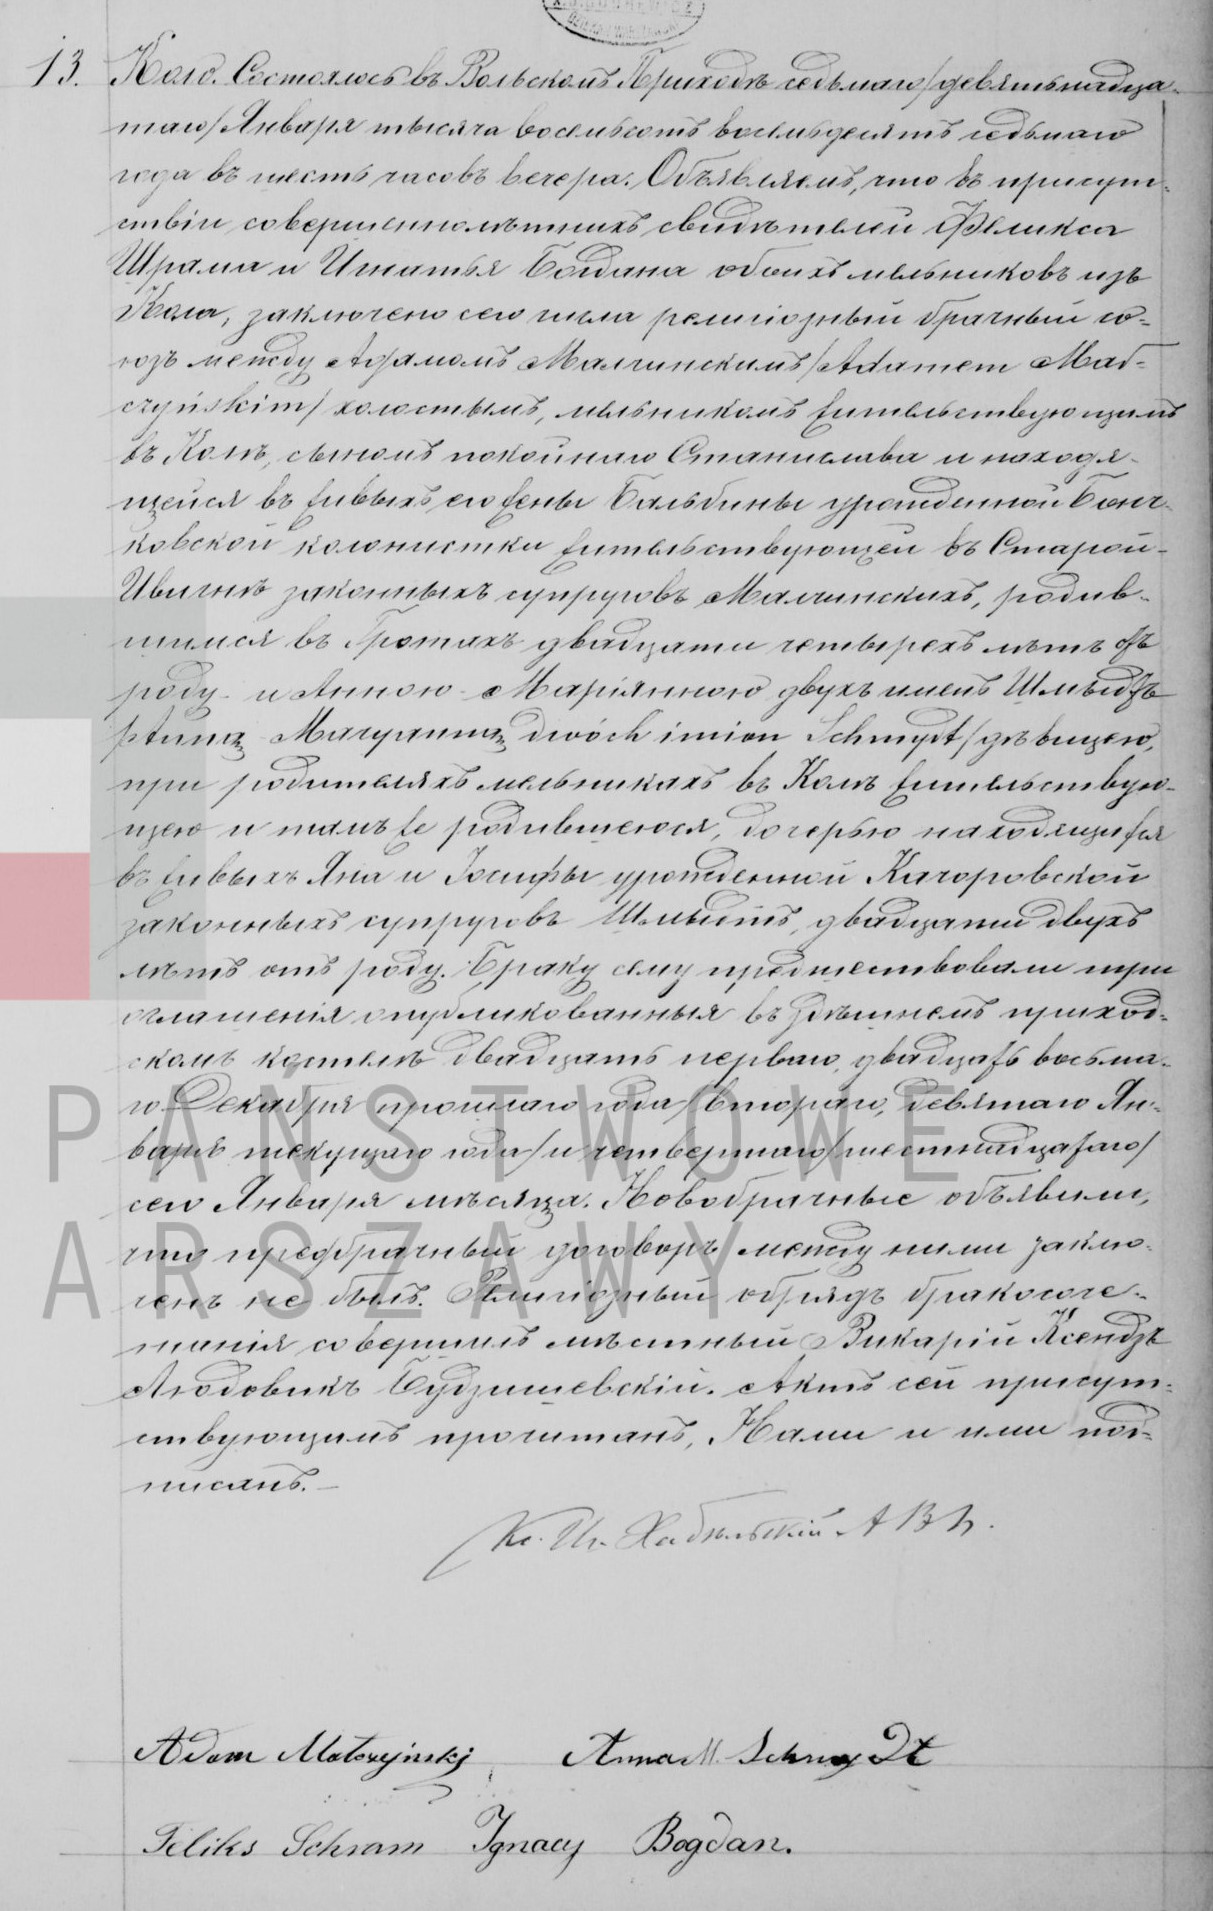 13. Коло. Состоялось въ Вольскомъ Приходѣ седьмаго/девятьнадца-
таго/Января тысяча восемьсотъ восемьдесятъ седьмаго
года въ шесть часовъ вечера. Объявляемъ, что въ присут-
ствіи совершеннолѣтнихъ свидѣтелей Феликса
Шрама и Игнатья Богдана обоихъ мельниковъ изъ
Кола, заключено сего числа религіозный брачный со-
юзъ между Адамомъ Малчинскимъ/Adamem Mał-
czyńskim/холостымъ, мельникомъ жительствующимъ
въ Колѣ, сыномъ покойнаго Станислава и находя-
щейся въ живыхъ его жены Бальбины урожденной
ковской колонистки жительствующей въ Старой-
Ивичнѣ законныхъ супруговъ Малчинскихъ, родив-
шимся въ Гротахъ двадцати четырехъ лѣтъ отъ
роду и Анною Маріянною двухъ именъ Шмыдтъ
/Anną Maryanną dwóch imion Schmydt/дѣвицею,
при родителяхъ мельникахъ въ Колѣ жительствую-
щею и тамъ же родившеюся, дочерью находящихся
въ живыхъ Яна и Іосифы урожденной Качоровской
законныхъ супруговъ Шмыдтъ, двадцати двухъ
лѣтъ отъ роду. Браку сему предшествовали три
оглашенія опубликованныя въ здѣшнемъ приход-
скомъ костелѣ двадцать перваго, двадцать восьма-
го Декабря прошлаго года/втораго, девятаго Ян-
варя текущаго года/и четвертаго/шестнадцатаго/
сего Января мѣсяца. Новобрачные объявили,
что предбрачный договоръ между ними заклю-
ченъ не былъ. Религіозный обрядъ бракосоче-
танія совершилъ мѣстный Викарій Ксендзъ
Людовикъ Будзишевскій. Актъ сей присут-
ствующимъ прочитанъ, Нами и ими под-
писанъ.—
Кс.
Adam Małczyński Anna M. Schmydt
Feliks Schram Ignacy Bogdan.
PAŃSTWOWE
ARSZAWY